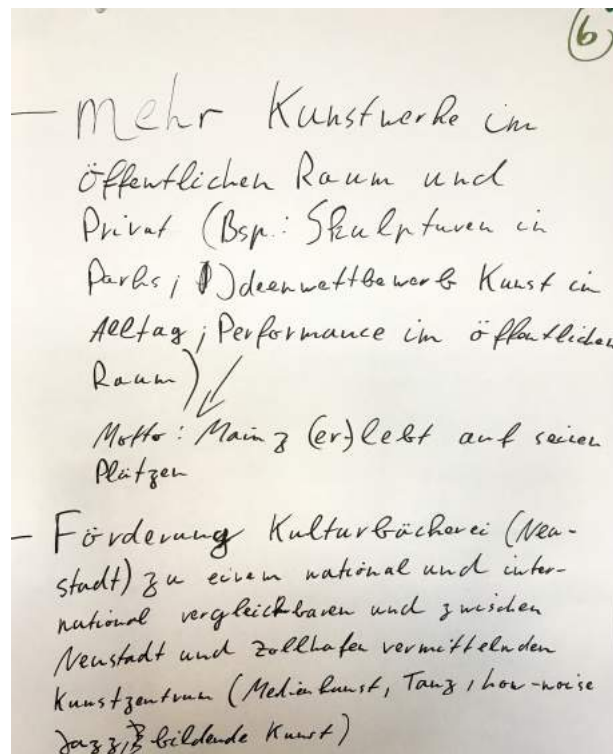 6
- Mehr Kunstwerke im
öffentlichen Raum und
Privat (Bsp.: Skulpturen in
Parks; Ideenwettbewerb Kunst im
Alltag; Performance im öffentlichen
Raum)
Motto: Mainz (er-)lebt auf seinen
Plätzen
- Förderung Kulturbäckerei (Neu-
stadt) zu einem national und inter-
national vergleichbaren und zwischen
Neustadt und Zollhafen vermittelnden
Kunstzentrum (Medienkunst, Tanz, how-noise
Jazz, bildende Kunst)